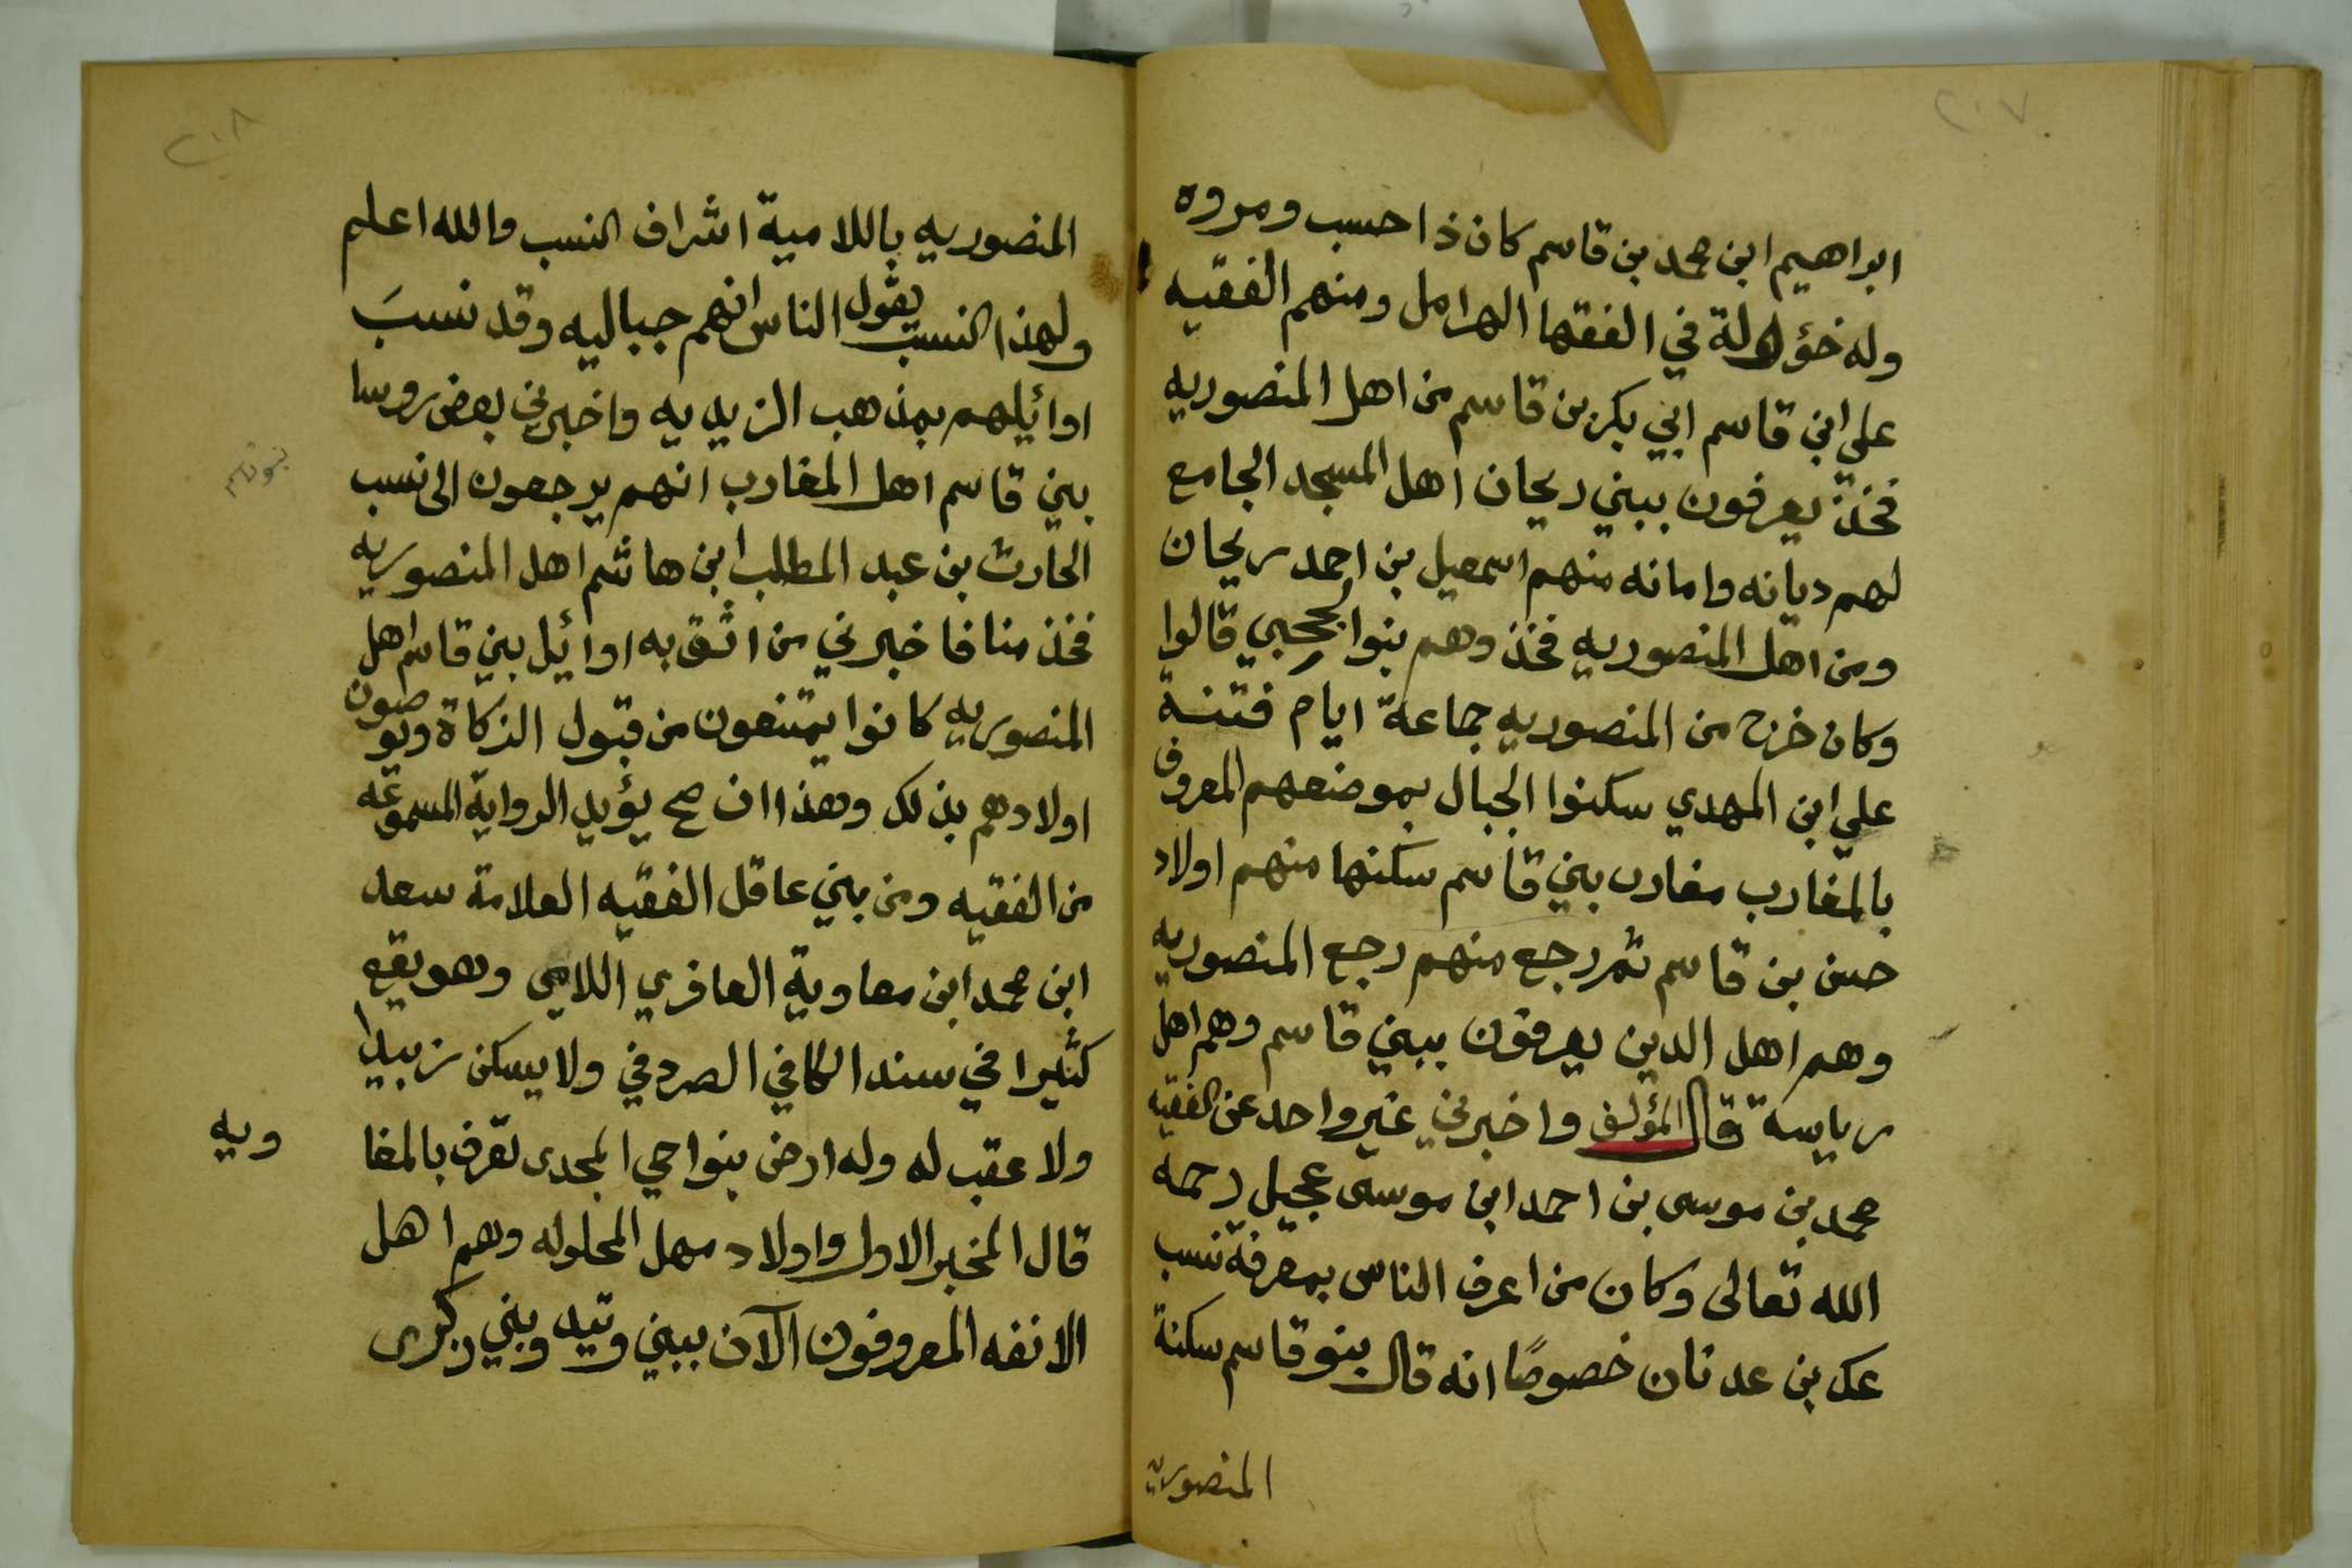 ٢٠٧
ابراهيم ابن محمد بن قاسم كان ذا حسب ومروه
وله خؤولة في الفقها الهرامل ومنهم الفقيه
علي ابن قاسم ابي بكر بن قاسم من اهل المنصوريه
فخذ يعرفون ببني ريحان اهل المسجد الجامع
لهم ديانه وامانه منهم اسمعيل بن احمد ريحان
ومن اهل المنصوريه فخذ وهم بنوا قالوا
وكان خرج من المنصوريه جماعة ايام فتنة
علي ابن المهدي سكنوا الجبال بموضعهم المعروف
بالمغارب مغارب بني قاسم سكنها منهم اولاد
حسن بن قاسم ثم رجع منهم رجع المنصوريه
وهم اهل الدين يعرفون ببني قاسم وهم اهل
رياسة قال المؤلف واخبرني غير واحد عن الفقيه
محمد بن موسى بن احمد ابن موسى عجيل رحمه
الله تعالى وكان من اعرف الناس بمعرفة نسب
عك بن عدنان خصوصًا انه قال بنو قاسم سكنة
المنصوريه
٢٠٨
المنصوريه باللامية اشراف النسب والله اعلم
ولهذا النسب يقول الناس انهم جباليه وقد نسبَ
اوائيلهم بمذهب الزيديه واخبرني بعض روسا
بني قاسم اهل المغارب انهم يرجعون الى نسب
الحارث بن عبد المطلب ابن هاشم اهل المنصوريه
فخذ منا فاخبرني من اثق به اوائيل بني قاسم اهل
المنصوريه كانوا يمتنعون من قبول الزكاة ويوصون
اولادهم بذلك وهذا ان صح يؤيد الرواية المسموعه
من الفقيه ومن بني عاقل الفقيه العلامة سعد
ابن محمد ابن معاوية العافري اللامي وهو يقع
كثيرا في سند الكافي الصردفي ولا يسكن زبيدا
ولا عقب له وله ارض بنواحي المجدى تعرف بالمغا
ويه
قال المخبر الاول واولاد مهل المحلوله وهم اهل
الانفه المعروفون الآن ببني وتيد وبني ركبرى